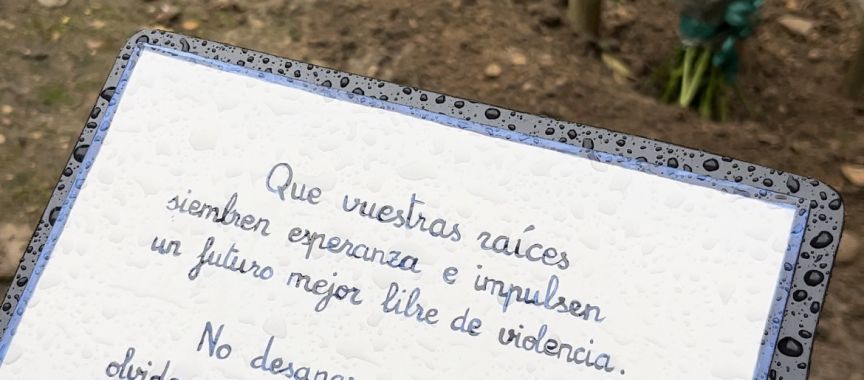 Que vuestras raíces
siembren esperanza e impulsen
un futuro mejor libre de violencia.
No